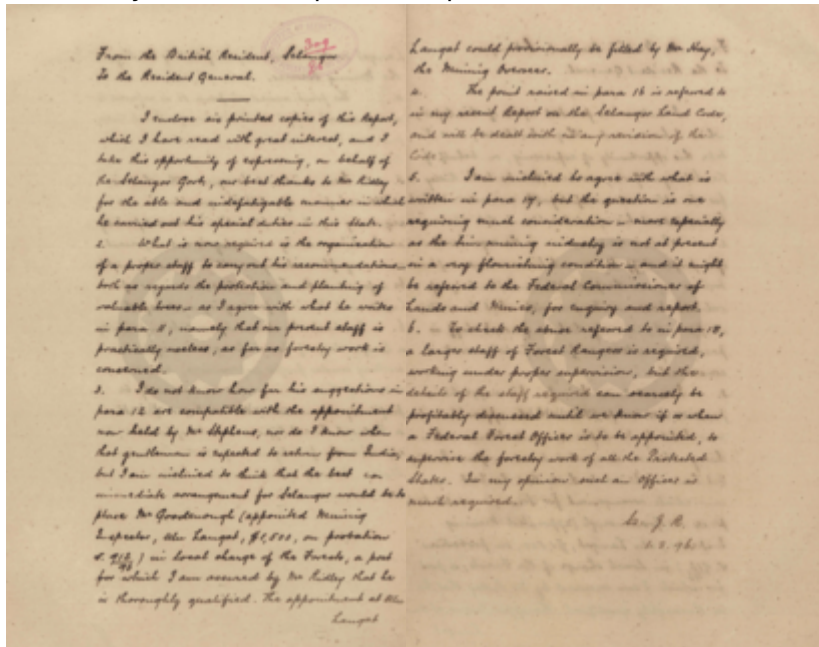 From the British Resident, Selangor
To the Resident General.
I enclose six printed copies of this Report,
which I have read with great interest, and I
take this opportunity of expressing, on behalf of
the Selangor Govt, our best thanks to Mr Ridley
for the able and indefatigable manner in which
he carried out his special duties in this State.
2. What is now required is the organization
of a proper staff to carry out his recommendations
both as regards the protection and planting of
valuable trees, as I agree with what he writes
in para 11, namely that our present staff is
practically useless, as far as forestry work is
concerned.
3. I do not know how far his suggestions in
para 12 are compatible with the appointment
now held by Mr Stephens, nor do I know when
that gentleman is expected to return from India,
but I am inclined to think that the best
immediate arrangement for Selangor would be to
place Mr Goodenough (appointed Mining
Inspector, Ulu Langat, $1,500, on probation
in local charge of the Forests, a post
for which I am assured by Mr Ridley that he
is thoroughly qualified. The appointment at Ulu
Langat
Langat could provisionally be filled by Mr Hay,
the Mining Overseer.
4. The point raised in para 16 is referred to
in my recent Report on the Selangor Land Code,
and will be dealt with in any revision of the
Code.
5. I am inclined to agree with what is
written in para 17, but the question is one
requiring much consideration - more especially
as the tin mining industry is not at present
in a very flourishing condition - and it might
be referred to the Federal Commissioner of
Lands and Mines, for enquiry and report.
6. To check the abuse referred to in para 18,
a larger staff of Forest Rangers is required,
working under proper supervision, but the
details of the staff required can scarcely be
profitably discussed until we know if or when
a Federal Forest Officer is to be appointed, to
supervise the forestry work of all the Protected
States. In my opinion such an Officer is
much required.